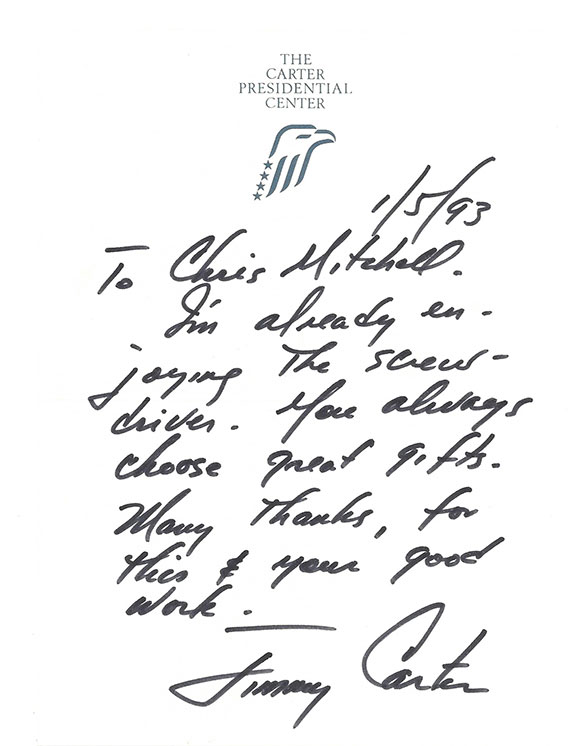 THE
CARTER
PRESIDENTIAL
CENTER
1/5/93
To Chris Mitchell.
I'm already en-
joying the screw-
driver. You always
choose great gifts.
Many thanks, for
this & your good
work.
Jimmy Carter